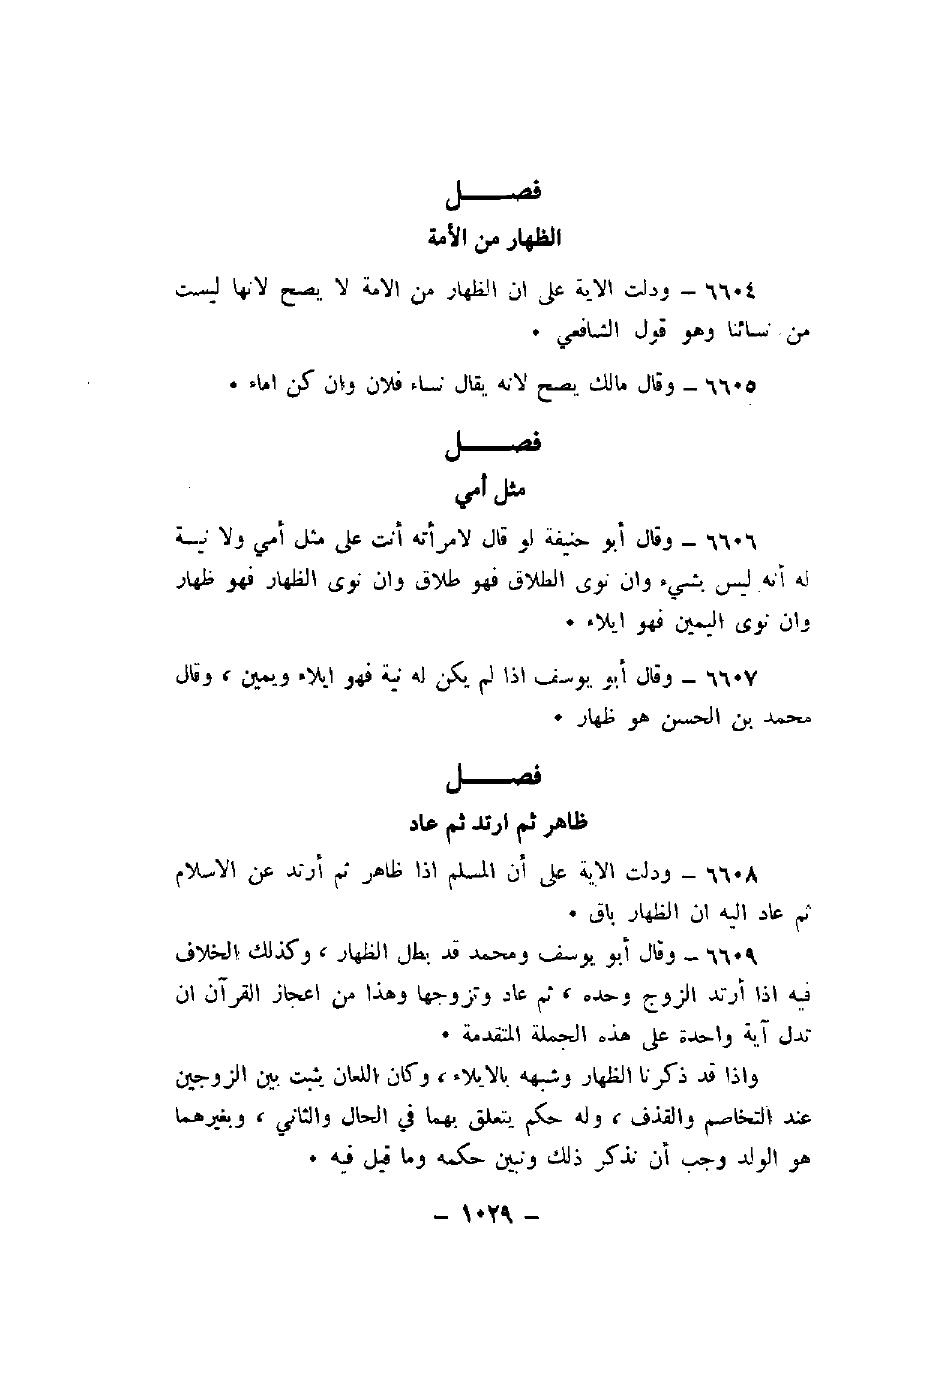 فصــــل
الظهار من الأمة
٦٦٠٤ – ودلت الاية على ان الظهار من الامة لا يصح لانها ليست
من نسائنا وهو قول الشافعي .
٦٦٠٥ – وقال مالك يصح لانه يقال نساء فلان وان كن اماء .
فصــــل
مثل أمي
٦٦٠٦ – وقال أبو حنيفة لو قال لامرأته أنت على مثل أمي ولا نيــة
له أنه ليس بشيء وان نوى الطلاق فهو طلاق وان نوى الظهار فهو ظهار
وان نوى اليمين فهو ايلاء .
٦٦٠٧ – وقال أبو يوسف اذا لم يكن له نية فهو ايلاء ويمين ، وقال
محمد بن الحسن هو ظهار .
فصــــل
ظاهر ثم ارتد ثم عاد
٦٦٠٨ – ودلت الاية على أن المسلم اذا ظاهر ثم أرتد عن الاسلام
ثم عاد اليه ان الظهار باق .
٦٦٠٩ – وقال أبو يوسف ومحمد قد بطل الظهار ، وكذلك الخلاف
فيه اذا أرتد الزوج وحده ، ثم عاد وتزوجها وهذا من اعجاز القرآن ان
تدل آية واحدة على هذه الجملة المتقدمة .
واذا قد ذكرنا الظهار وشبهه بالايلاء ، وكان اللعان يثبت بين الزوجين
عند التخاصم والقذف ، وله حكم يتعلق بهما في الحال والثاني ، وبغيرهما
هو الولد وجب أن نذكر ذلك ونبين حكمه وما قيل فيه .
– ١٠٢٩ –